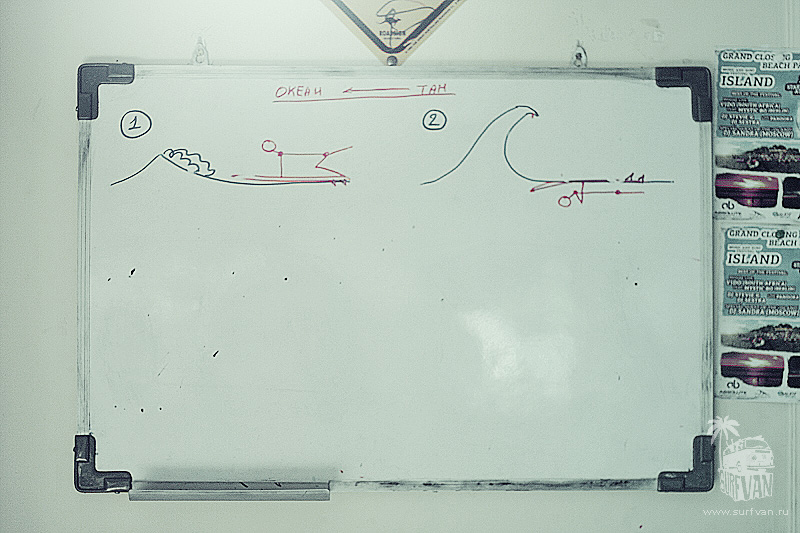 ROADHER
ОКЕАН ← ТАМ
1
2
GRAND CLOSING
BEACH PA
ISLAND
BEST OF THE FESTIVAL
VIDO (SOUTH AFRICA)
DJ STEVIE G
DJ SESTRA
DJ SANDRA (MOSCOW)
GRAND CLOSING
BEACH
ISLAND
BEST OF THE FESTIVAL
VIDO (SOUTH AFRICA)
DJ STEVIE G
DJ SESTRA
DJ SANDRA (MOSCOW)
SURFVAN
www.surfvan.ru